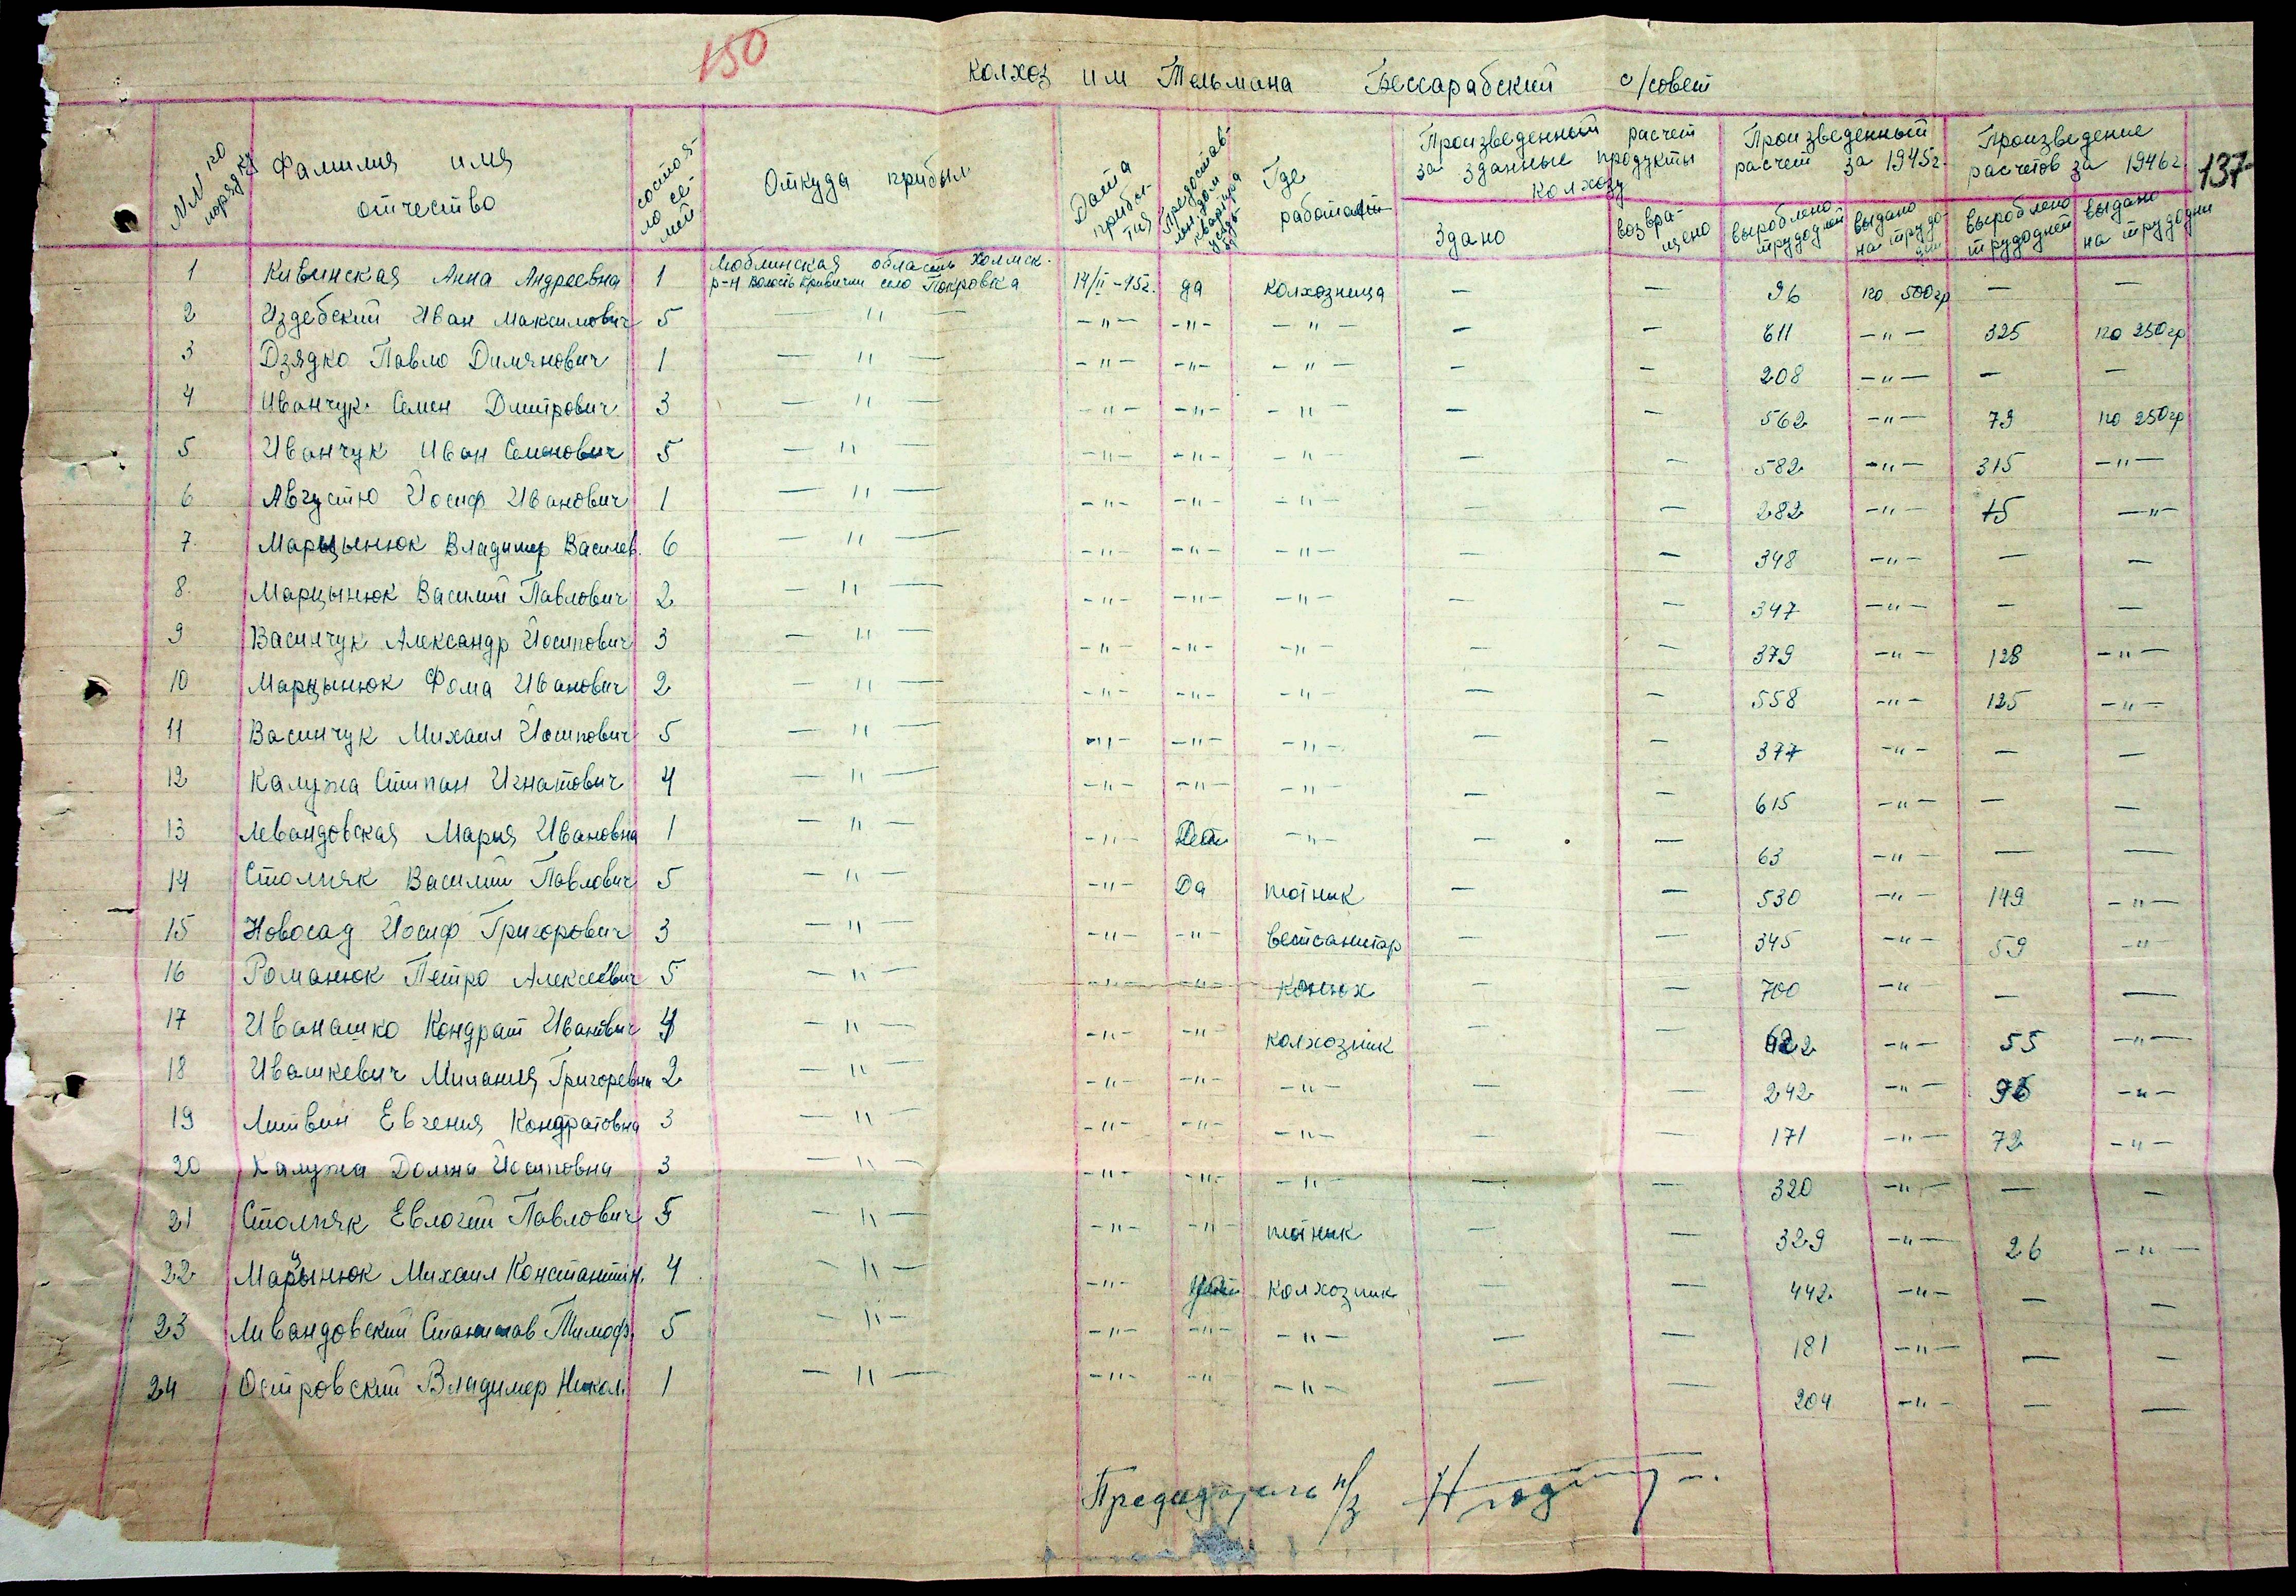 150
колхоз им Тельмана Бессарабский с/совет
137
NN по порядку
Фамилия имя отчество
состоя- ло се- мей
Откуда прибыл
Дата прибы- тия
Предоставлен дом квартира
Где работает
Произведенный расчет за зданные продукты колхозу
Здано
возвра- щено
Произведенный расчет за 1945г.
выроблено трудодней
выдано на трудо- дни
Произведение расчетов за 1946г
выроблено трудодней
выдано на трудодни
1 Кивинская Анна Андреевна 1 Люблинская область Холмск. р-н волость Кривички село Покровка 14/II-45г. да колхозница — — 96 по 500гр — —
2 Издебский Иван Максимович 5 —"— —"— —"— —"— — — 611 —"— 325 по 250гр
3 Дзядко Павло Димянович 1 —"— —"— —"— —"— — — 208 —"— — —
4 Иванчук Семен Дмитрович 3 —"— —"— —"— —"— — — 562 —"— 79 по 250гр
5 Иванчук Иван Семенович 5 —"— —"— —"— —"— — — 582 —"— 315 —"—
6 Августю Йосиф Иванович 1 —"— —"— —"— —"— — — 282 —"— 15 —"—
7 Марцынюк Владимер Василев. 6 —"— —"— —"— —"— — — 348 —"— — —
8 Марцынюк Василий Павлович 2 —"— —"— —"— —"— — — 347 —"— — —
9 Васинчук Александр Йосипович 3 —"— —"— —"— —"— — — 379 —"— 128 —"—
10 Марцынюк Фома Иванович 2 —"— —"— —"— —"— — — 558 —"— 125 —"—
11 Васинчук Михаил Йосипович 5 —"— —"— —"— —"— — — 377 —"— — —
12 Калужа Стипан Игнатович 4 —"— —"— —"— —"— — — 615 —"— — —
13 Левандовская Мария Ивановна 1 —"— —"— —"— — — 63 —"— — —
14 Столпяк Василий Павлович 5 —"— —"— Да плотник — — 530 —"— 149 —"—
15 Новосад Йосиф Григорович 3 —"— —"— —"— ветсанитар — — 345 —"— 59 —"—
16 Романюк Петро Алексеевич 5 —"— —"— —"— конюх — — 700 —"— — —
17 Иванашко Кондрат Иванович 4 —"— —"— —"— колхозник — — 622 —"— 55 —"—
18 Ивашкевич Милания Григоревна 2 —"— —"— —"— —"— — — 242 —"— 96 —"—
19 Литвин Евгения Кондратовна 3 —"— —"— —"— —"— — — 171 —"— 72 —"—
20 Калужа Домна Йосиповна 3 —"— —"— —"— —"— — — 320 —"— — —
21 Столпяк Евлогий Павлович 5 —"— —"— —"— плотник — — 329 —"— 26 —"—
22 Марцынюк Михаил Константин. 4 —"— —"— колхозник — — 442 —"— — —
23 Ливандовский Станислав Тимоф. 5 —"— —"— —"— —"— — — 181 —"— — —
24 Островский Владимер Никол. 1 —"— —"— —"— —"— — — 204 —"— — —
Председатель к/з